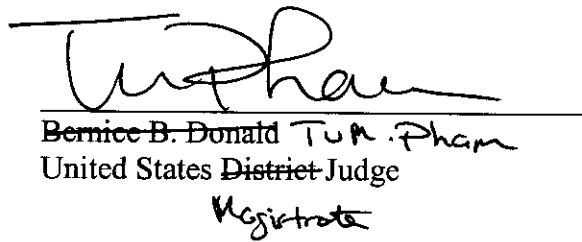 Tu Pham
Bernice B. Donald Tu M. Pham
United States District Judge
Magistrate